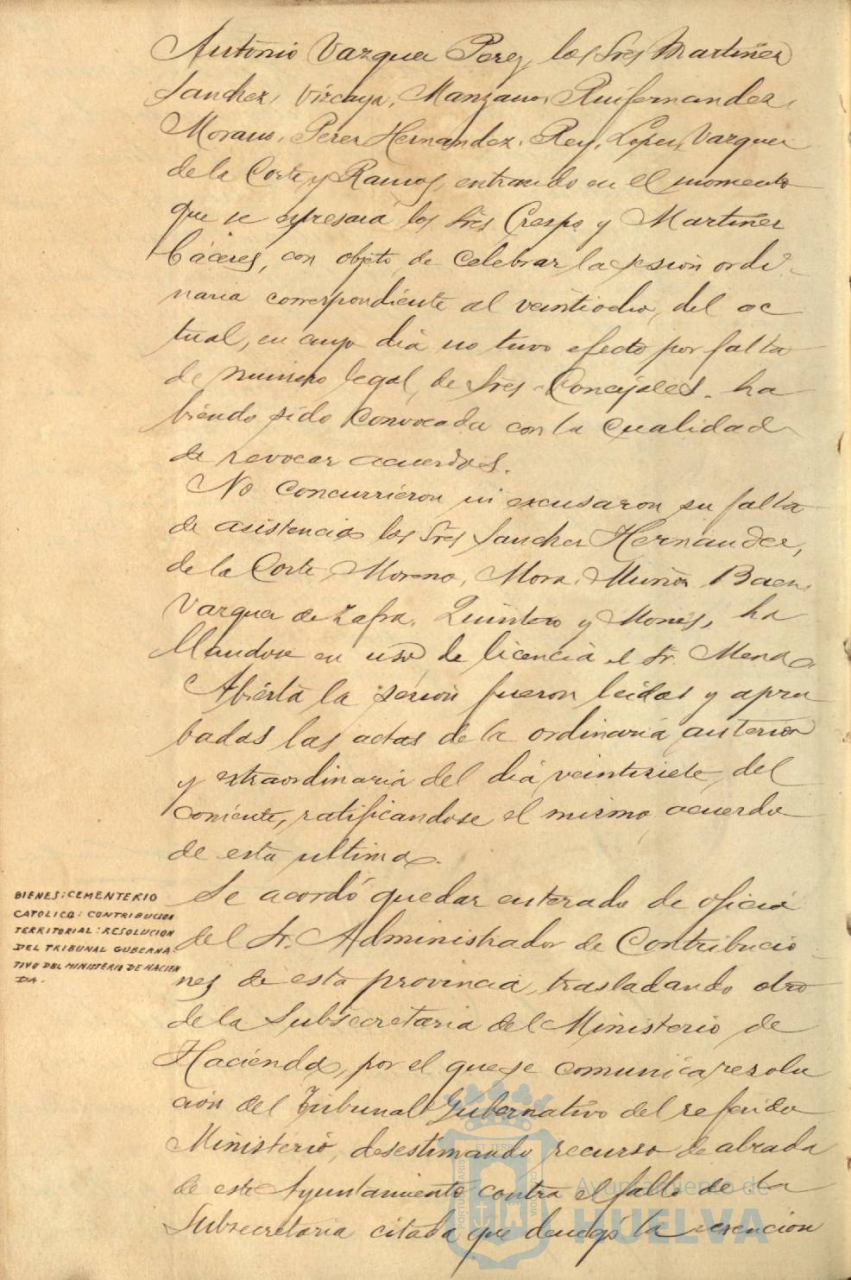 Antonio Vazquez Perez, los Sres Martinez
Sanchez, Vizcaya, Manzano, Ruifernandez,
Morano, Perez Hernandez, Rey, Lopez, Vazquez
de la Corte y Ramos, entrando en el momento
que se espresará los Sres Crespo y Martinez
Cáceres, con objeto de celebrar la sesión ordi-
naria correspondiente al veintiocho, del ac
tual, en cuyo dia no tuvo efecto por falta
de número legal, de Sres Concejales, ha
biendo sido convocada con la cualidad
de revocar acuerdos.
No concurrieron ni excusaron su falta
de asistencia los Sres Sanchez Hernandez,
de la Corte, Moreno, Mora, Muñoz, Baez,
Vazquez de Zafra, Quintero y Mones, ha
llandose en uso de licencia el Sr. Mena
Abierta la sesion fueron leidas y apro
badas las actas de la ordinaria anterior
y extraordinaria del dia veintisiete, del
corriente, ratificandose el mismo acuerdo
de esta ultima.
BIENES: CEMENTERIO
CATOLICO: CONTRIBUCION
TERRITORIAL: RESOLUCION
DEL TRIBUNAL GUBERNA-
TIVO DEL MINISTERIO DE HACIEN
DA.
Se acordó quedar enterado de oficio
del Sr. Administrador de Contribucio
nes de esta provincia, trasladando otro
de la Subsecretaria del Ministerio de
Hacienda, por el que se comunica resolu
ción del Tribunal Gubernativo del referido
Ministerio, desestimando recurso de alzada
de este Ayuntamiento contra el fallo de la
Subsecretaria citada que denegó la exencion
Ayuntamiento de
HUELVA